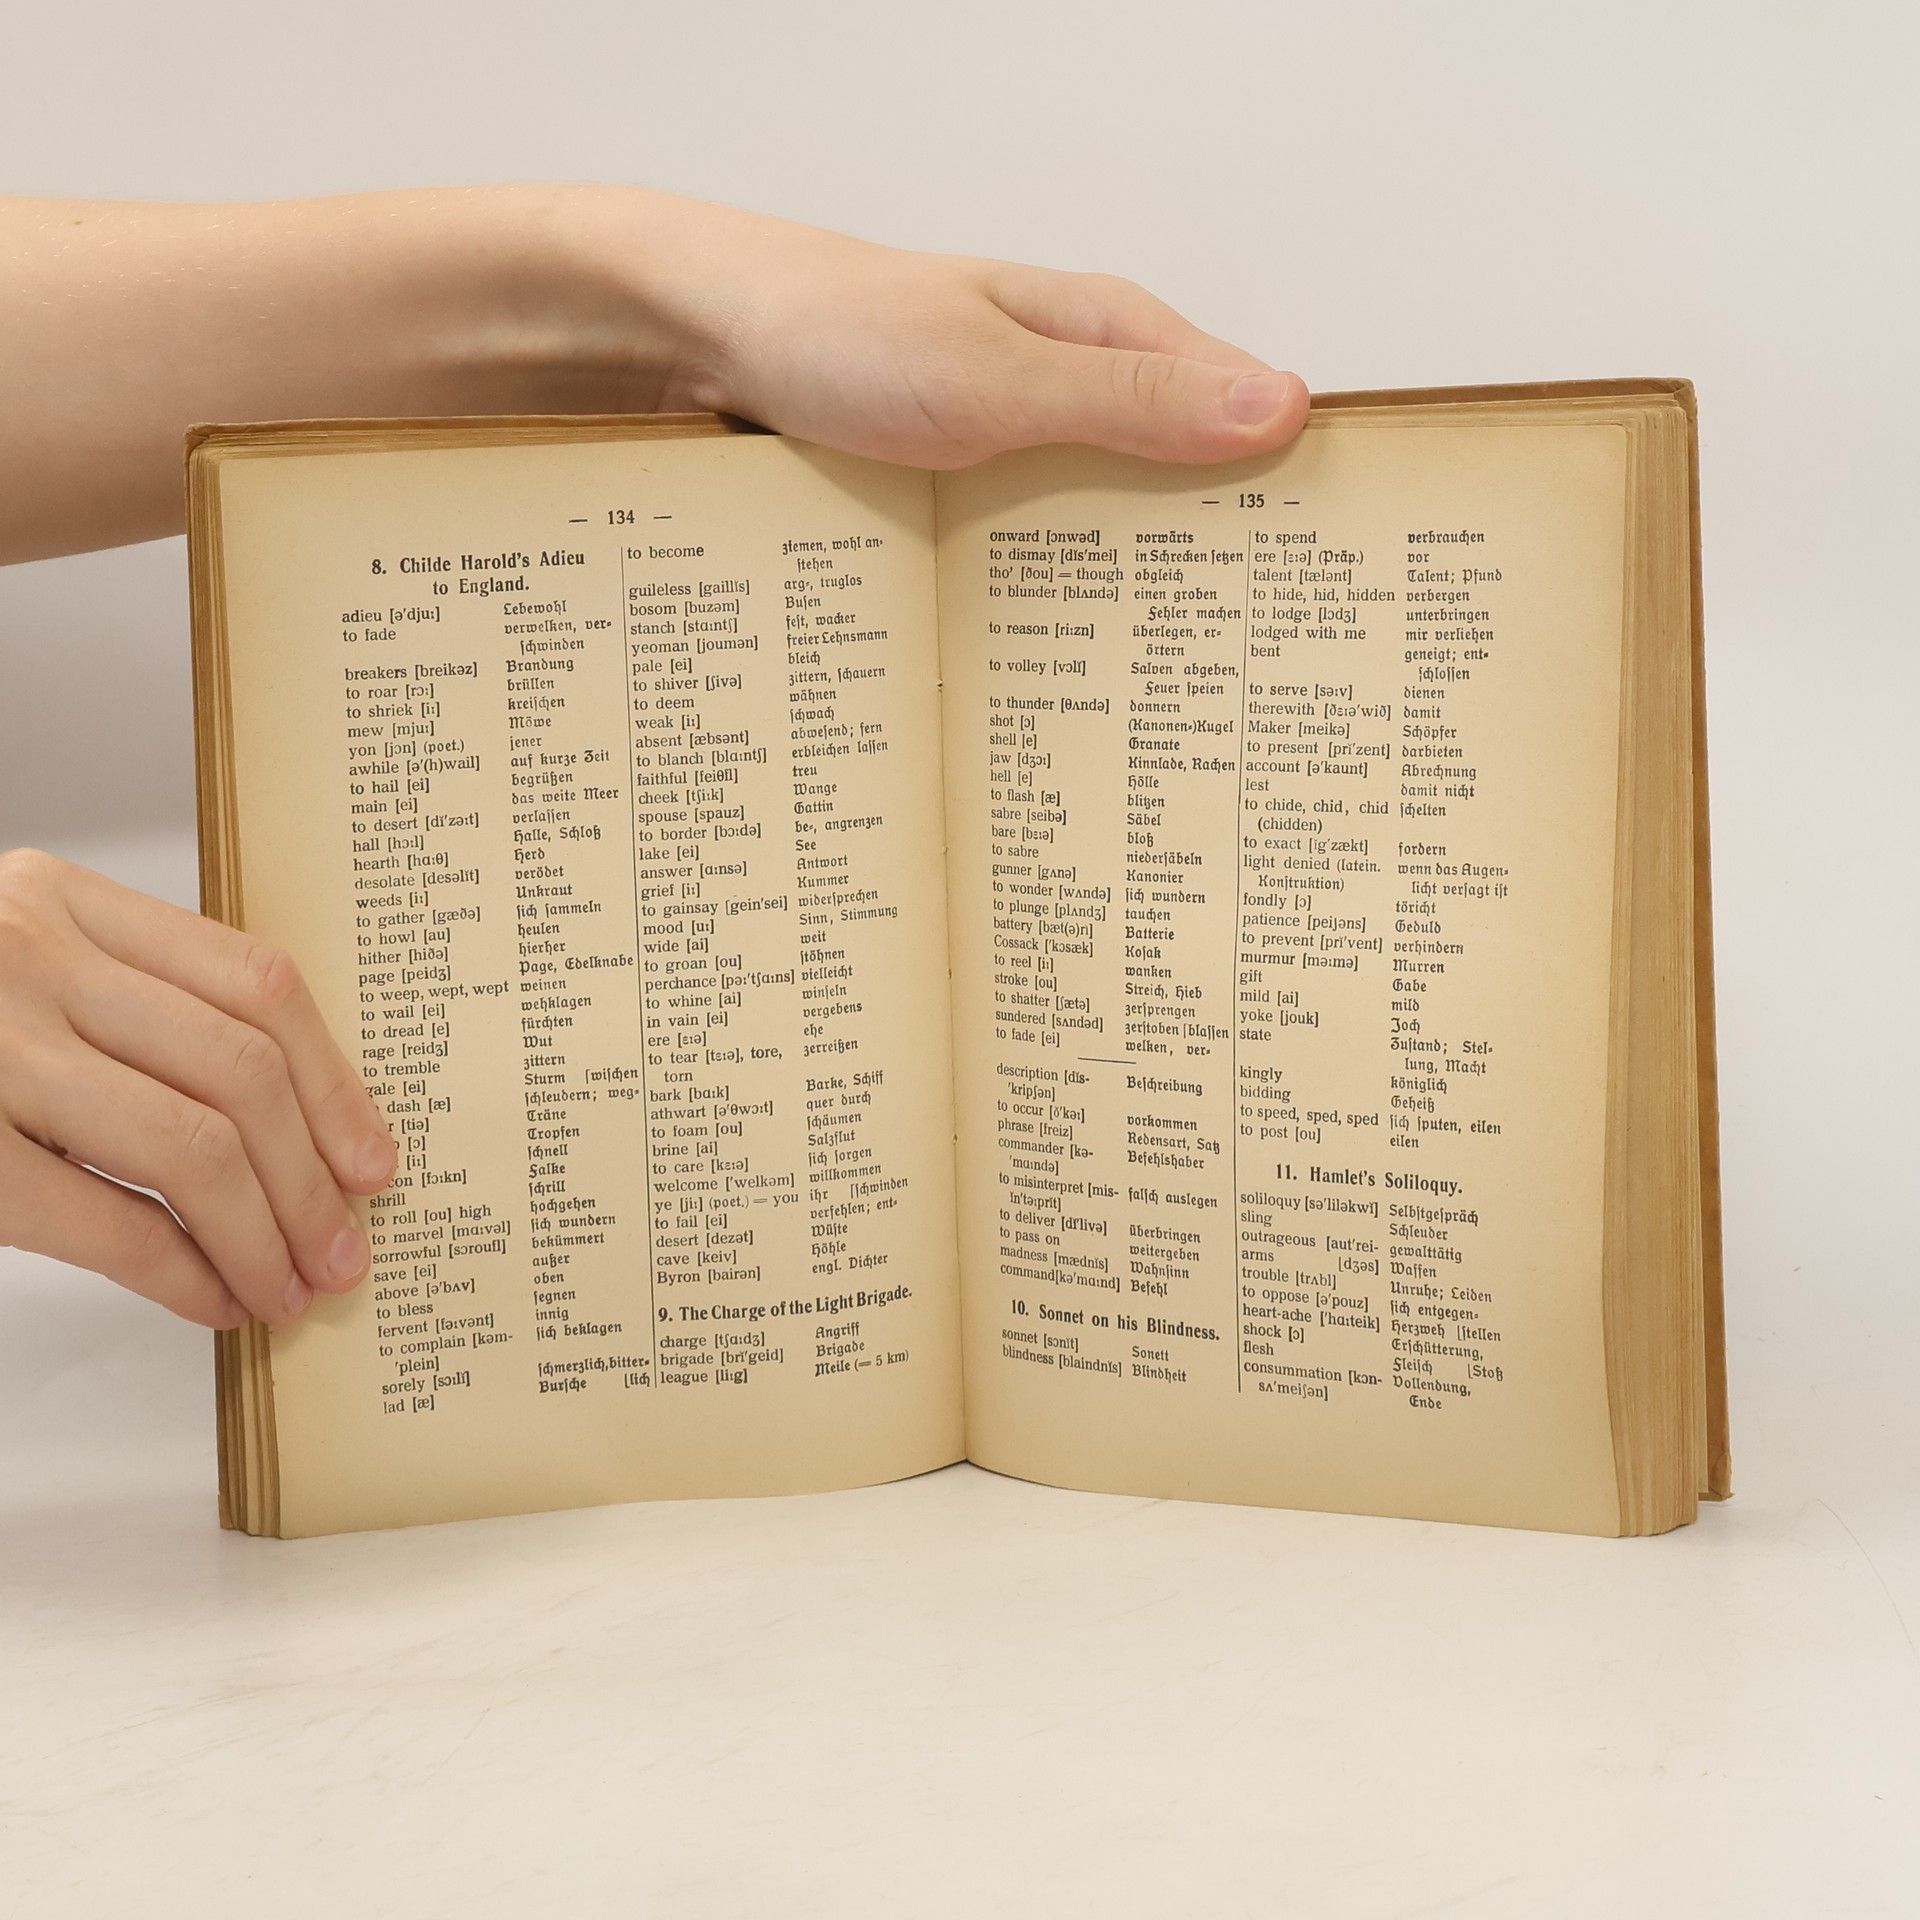 — 134 —
8. Childe Harold's Adieu
to England.
adieu [ə'djuː] Lebewohl
to fade verwelken, ver-
ſchwinden
breakers [breikəz] Brandung
to roar [rɔː] brüllen
to shriek [iː] kreiſchen
mew [mjuː] Möwe
yon [jɔn] (poet.) jener
awhile [ə'(h)wail] auf kurze Zeit
to hail [ei] begrüßen
main [ei] das weite Meer
to desert [dĭ'zəːt] verlaſſen
hall [hɔːl] Halle, Schloß
hearth [hɑːθ] Herd
desolate [desəlĭt] verödet
weeds [iː] Unkraut
to gather [gæðə] ſich ſammeln
to howl [au] heulen
hither [hiðə] hierher
page [peidʒ] Page, Edelknabe
to weep, wept, wept weinen
to wail [ei] wehklagen
to dread [e] fürchten
rage [reidʒ] Wut
to tremble zittern
gale [ei] Sturm [wiſchen
dash [æ] ſchleudern; weg-
[tiə] Träne
[ɔ] Tropfen
[iː] ſchnell
[fɔːkn] Falke
shrill ſchrill
to roll [ou] high hochgehen
to marvel [mɑːvəl] ſich wundern
sorrowful [sɔroufl] bekümmert
save [ei] außer
above [ə'bʌv] oben
to bless ſegnen
fervent [fəːvənt] innig
to complain [kəm- ſich beklagen
'plein]
sorely [sɔːlĭ] ſchmerzlich, bitter-
lad [æ] Burſche [lich
to become ziemen, wohl an-
ſtehen
guileless [gaillĭs] arg-, truglos
bosom [buzəm] Buſen
stanch [stɑːntʃ] feſt, wacker
yeoman [joumən] freier Lehnsmann
pale [ei] bleich
to shiver [ʃivə] zittern, ſchauern
to deem wähnen
weak [iː] ſchwach
absent [æbsənt] abweſend; fern
to blanch [blɑːntʃ] erbleichen laſſen
faithful [feiθfl] treu
cheek [tʃiːk] Wange
spouse [spauz] Gattin
to border [bɔːdə] be-, angrenzen
lake [ei] See
answer [ɑːnsə] Antwort
grief [iː] Kummer
to gainsay [gein'sei] widerſprechen
mood [uː] Sinn, Stimmung
wide [ai] weit
to groan [ou] ſtöhnen
perchance [pəː'tʃɑːns] vielleicht
to whine [ai] winſeln
in vain [ei] vergebens
ere [ɛːə] ehe
to tear [tɛːə], tore, zerreißen
torn
bark [bɑːk] Barke, Schiff
athwart [ə'θwɔːt] quer durch
to foam [ou] ſchäumen
brine [ai] Salzflut
to care [kɛːə] ſich ſorgen
welcome ['welkəm] willkommen
ye [jiː] (poet.) = you ihr [ſchwinden
to fail [ei] verfehlen; ent-
desert [dezət] Wüſte
cave [keiv] Höhle
Byron [bairən] engl. Dichter
9. The Charge of the Light Brigade.
charge [tʃɑːdʒ] Angriff
brigade [brĭ'geid] Brigade
league [liːg] Meile (= 5 km)
— 135 —
onward [ɔnwəd] vorwärts
to dismay [dĭs'mei] in Schrecken ſetzen
tho' [ðou] = though obgleich
to blunder [blʌndə] einen groben
Fehler machen
to reason [riːzn] überlegen, er-
örtern
to volley [vɔlĭ] Salven abgeben,
Feuer ſpeien
to thunder [θʌndə] donnern
shot [ɔ] (Kanonen-)Kugel
shell [e] Granate
jaw [dʒɔː] Kinnlade, Rachen
hell [e] Hölle
to flash [æ] blitzen
sabre [seibə] Säbel
bare [bɛːə] bloß
to sabre niederſäbeln
gunner [gʌnə] Kanonier
to wonder [wʌndə] ſich wundern
to plunge [plʌndʒ] tauchen
battery [bæt(ə)rĭ] Batterie
Cossack ['kɔsæk] Koſak
to reel [iː] wanken
stroke [ou] Streich, Hieb
to shatter [ʃætə] zerſprengen
sundered [sʌndəd] zerſtoben [blaſſen
to fade [ei] welken, ver-
description [dĭs- Beſchreibung
'kripʃən]
to occur [ŏ'kəː] vorkommen
phrase [freiz] Redensart, Satz
commander [kə- Befehlshaber
'mɑːndə]
to misinterpret [mis- falſch auslegen
ĭn'təːprĭt]
to deliver [dĭ'livə] überbringen
to pass on weitergeben
madness [mædnĭs] Wahnſinn
command [kə'mɑːnd] Befehl
10. Sonnet on his Blindness.
sonnet [sɔnĭt] Sonett
blindness [blaindnĭs] Blindheit
to spend verbrauchen
ere [ɛːə] (Präp.) vor
talent [tælənt] Talent; Pfund
to hide, hid, hidden verbergen
to lodge [lɔdʒ] unterbringen
lodged with me mir verliehen
bent geneigt; ent-
ſchloſſen
to serve [səːv] dienen
therewith [ðɛːə'wið] damit
Maker [meikə] Schöpfer
to present [prĭ'zent] darbieten
account [ə'kaunt] Abrechnung
lest damit nicht
to chide, chid, chid ſchelten
(chidden)
to exact [ĭg'zækt] fordern
light denied (latein. wenn das Augen-
Konſtruktion) licht verſagt iſt
fondly [ɔ] töricht
patience [peiʃəns] Geduld
to prevent [prĭ'vent] verhindern
murmur [məːmə] Murren
gift Gabe
mild [ai] mild
yoke [jouk] Joch
state Zuſtand; Stel-
lung, Macht
kingly königlich
bidding Geheiß
to speed, sped, sped ſich ſputen, eilen
to post [ou] eilen
11. Hamlet's Soliloquy.
soliloquy [sə'liləkwĭ] Selbſtgeſpräch
sling Schleuder
outrageous [aut'rei- gewalttätig
arms [dʒəs] Waffen
trouble [trʌbl] Unruhe; Leiden
to oppose [ə'pouz] ſich entgegen-
heart-ache ['hɑːteik] Herzweh [ſtellen
shock [ɔ] Erſchütterung,
flesh Fleiſch [Stoß
consummation [kɔn- Vollendung,
sʌ'meiʃən] Ende